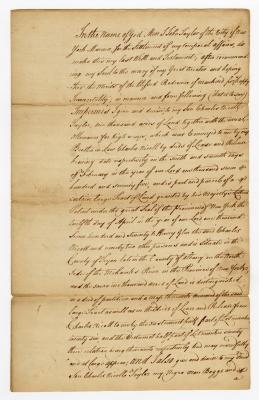 In the Name of God Amen I John Taylor of the City of New
York Mariner, for the Settlement of my temporal affairs, do
make this my last Will and Testament, after recommend
ing my Soul to the mercy of my Great Creator and hoping
thro' the Merits of the Blessed Redeemer of Mankind for happy
Immortality; in manner and form following (that is to say)
Imprimis I give and devise to my Son Charles Nicoll
Taylor, one thousand acres of Land together with the usual
allowance for high ways, which was Conveyed to me by my
Brother in Law Charles Nicoll by deeds of Lease and Release
bearing date respectively on the sixth and seventh days
of February in the year of our Lord one thousand seven
hundred and seventy five, and is part and parcel of a
certain large Tract of Land granted by his Majesty's Letters
Patent under the great Seal of the Province of New York the
day of April in the year of our Lord one thousand
seven hundred and seventy to Henry Glen the said Charles
Nicoll and ninety two other persons and is Situate in the
County of Tryon late the County of Albany on the North
Side of the Mohawks River in the Province of New York,
and the said one thousand acres of Land is distinguished
in a deed of partition and a Map thereunto annexed of the said
large Tract as well as in the deeds of Lease and Release from
Charles Nicoll to me by the
and the
their relation being thereunto respectively had may more fully
and at large appear, And I also give and devise to my said
Son Charles Nicoll Taylor my Negro Man and